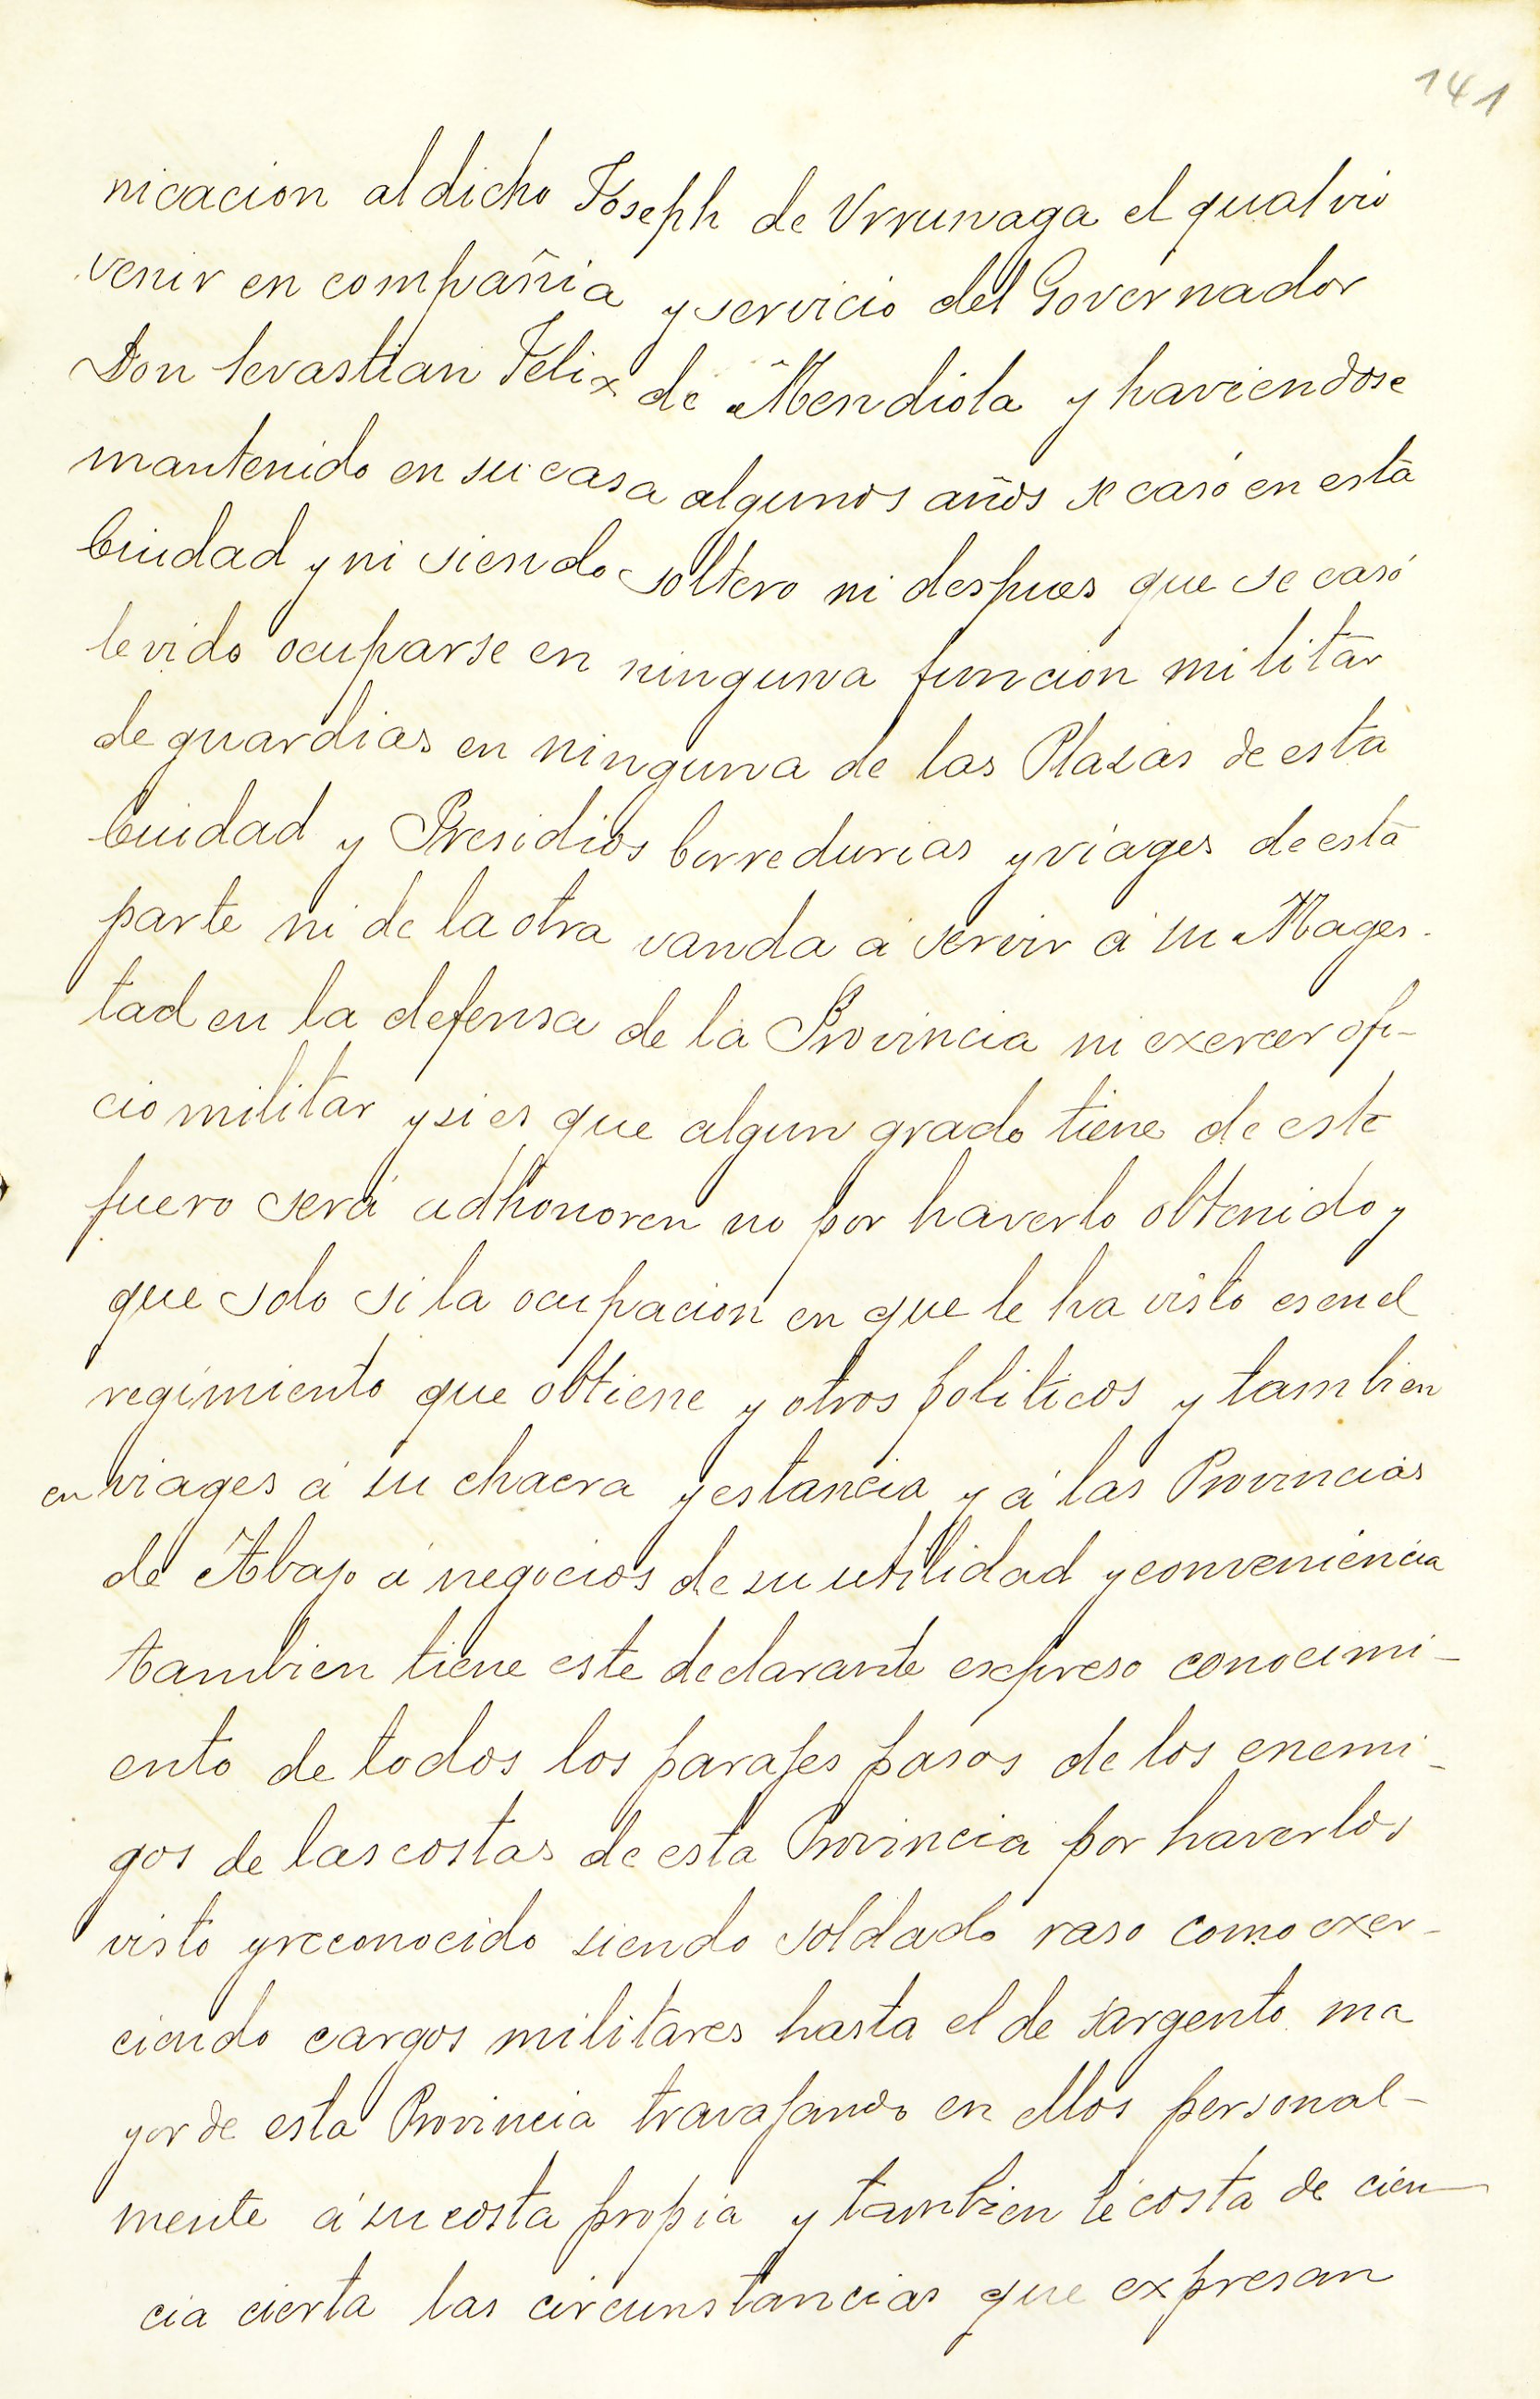 141
nicacion al dicho Joseph de Vrrunaga el qual vió
venir en compañia y servicio del Governador
Don Sevastian Felix de Mendiola y haviendose
mantenido en su casa algunos años se casó en esta
Ciudad y ni siendo soltero ni despues que se casó
le vido ocuparse en ninguna funcion militar
de guardias en ninguna de las Plazas de esta
Ciudad y Presidios Corredurias y viages de esta
parte ni de la otra vanda á servir á su Mages-
tad en la defensa de la Provincia ni exercer ofi-
cio militar y si es que algun grado tiene de este
fuero será adhonoren no por haverlo obtenido y
que solo si la ocupacion en que le ha visto es en el
regimiento que obtiene y otros politicos y tambien
en viages á su chacra y estancia y á las Provincias
de Abajo á negocios de su utilidad y conveniencia
tambien tiene este declarante expreso conocimi-
ento de todos los parajes pasos de los enemi-
gos de las costas de esta Provincia por haverlos
visto y reconocido siendo soldado raso como exer-
ciendo cargos militares hasta el de sargento ma
yor de esta Provincia travajando en ellos personal-
mente á su costa propia y tambien le costa de cien-
cia cierta las circunstancias que expresan